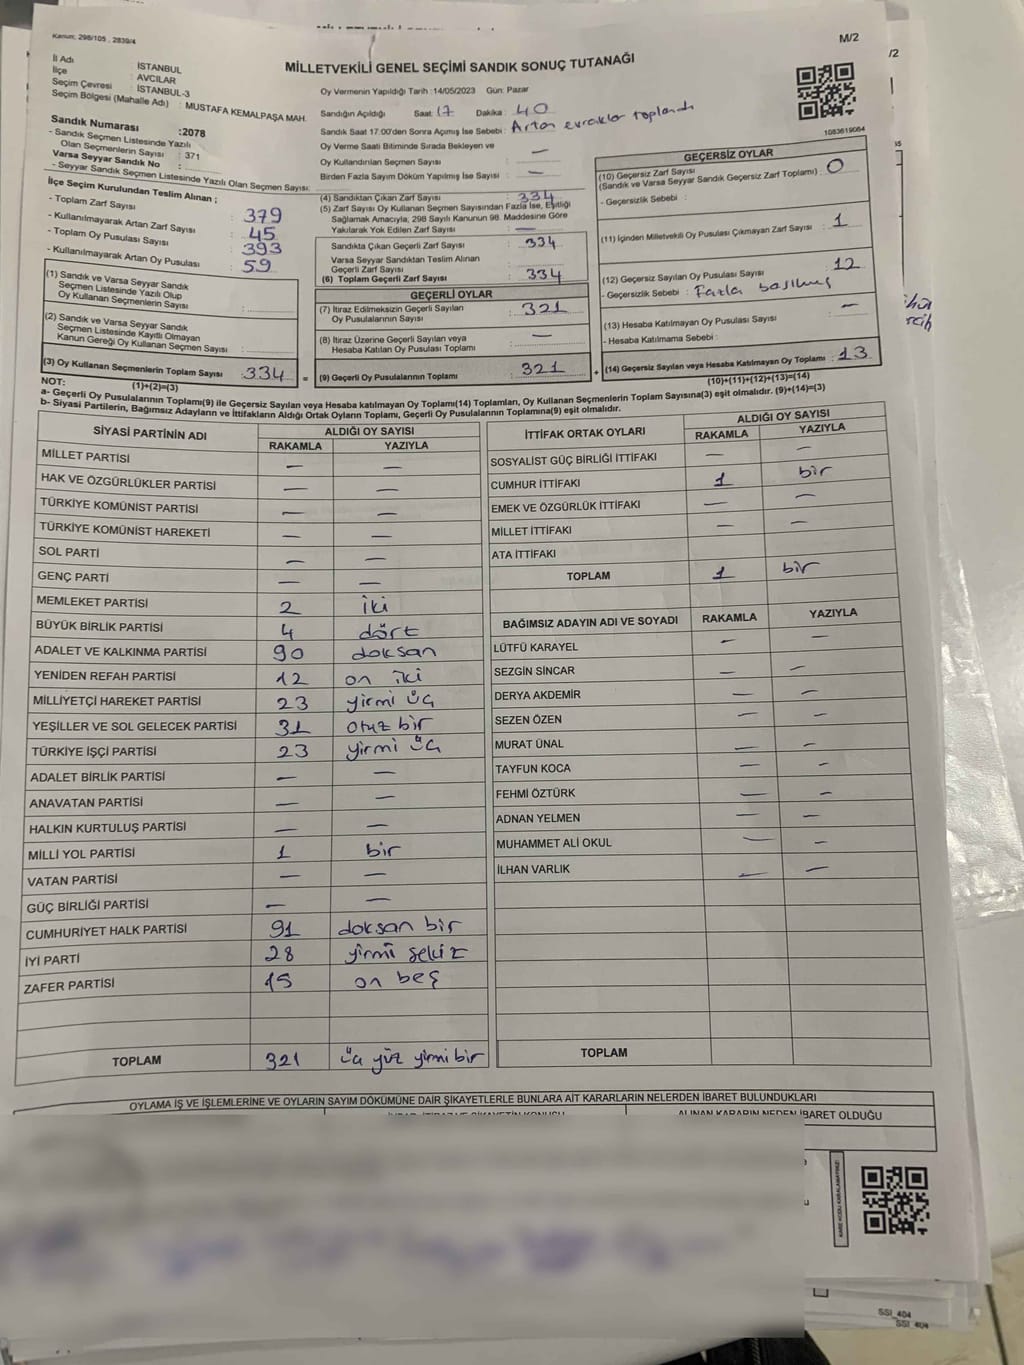 Kanun: 298/105 , 2839/4
M/2
/2
MİLLETVEKİLİ GENEL SEÇİMİ SANDIK SONUÇ TUTANAĞI
İl Adı : İSTANBUL
İlçe : AVCILAR
Seçim Çevresi : İSTANBUL-3
Seçim Bölgesi (Mahalle Adı) : MUSTAFA KEMALPAŞA MAH.
Sandık Numarası :2078
- Sandık Seçmen Listesinde Yazılı
Olan Seçmenlerin Sayısı : 371
Varsa Seyyar Sandık No :
- Seyyar Sandık Seçmen Listesinde Yazılı Olan Seçmen Sayısı:
İlçe Seçim Kurulundan Teslim Alınan ;
- Toplam Zarf Sayısı : 379
- Kullanılmayarak Artan Zarf Sayısı : 45
- Toplam Oy Pusulası Sayısı : 393
- Kullanılmayarak Artan Oy Pusulası : 59
(1) Sandık ve Varsa Seyyar Sandık
Seçmen Listesinde Yazılı Olup
Oy Kullanan Seçmenlerin Sayısı :
(2) Sandık ve Varsa Seyyar Sandık
Seçmen Listesinde Kayıtlı Olmayan
Kanun Gereği Oy Kullanan Seçmen Sayısı :
(3) Oy Kullanan Seçmenlerin Toplam Sayısı : 334 =
(1)+(2)=(3)
Oy Vermenin Yapıldığı Tarih :14/05/2023 Gün: Pazar
Sandığın Açıldığı Saat: 17 Dakika : 40
Sandık Saat 17:00'den Sonra Açımış İse Sebebi : Artan evraklar toplandı
Oy Verme Saati Bitiminde Sırada Bekleyen ve
Oy Kullandırılan Seçmen Sayısı : —
Birden Fazla Sayım Döküm Yapılmış İse Sayısı : —
(4) Sandıktan Çıkan Zarf Sayısı : 334
(5) Zarf Sayısı Oy Kullanan Seçmen Sayısından Fazla İse, Eşitliği
Sağlamak Amacıyla, 298 Sayılı Kanunun 98. Maddesine Göre
Yakılarak Yok Edilen Zarf Sayısı : —
Sandıkta Çıkan Geçerli Zarf Sayısı : 334
Varsa Seyyar Sandıktan Teslim Alınan
Geçerli Zarf Sayısı :
(6) Toplam Geçerli Zarf Sayısı : 334
GEÇERLİ OYLAR
(7) İtiraz Edilmeksizin Geçerli Sayılan
Oy Pusulalarının Sayısı : 321
(8) İtiraz Üzerine Geçerli Sayılan veya
Hesaba Katılan Oy Pusulası Toplamı : —
(9) Geçerli Oy Pusulalarının Toplamı : 321 +
1083619064
GEÇERSİZ OYLAR
(10) Geçersiz Zarf Sayısı
(Sandık ve Varsa Seyyar Sandık Geçersiz Zarf Toplamı) : 0
- Geçersizlik Sebebi :
(11) İçinden Milletvekili Oy Pusulası Çıkmayan Zarf Sayısı : 1
(12) Geçersiz Sayılan Oy Pusulası Sayısı : 12
- Geçersizlik Sebebi : Fazla basılmış
(13) Hesaba Katılmayan Oy Pusulası Sayısı : —
- Hesaba Katılmama Sebebi :
(14) Geçersiz Sayılan veya Hesaba Katılmayan Oy Toplamı : 13
(10)+(11)+(12)+(13)=(14)
NOT:
a- Geçerli Oy Pusulalarının Toplamı(9) ile Geçersiz Sayılan veya Hesaba Katılmayan Oy Toplamı(14) Toplamları, Oy Kullanan Seçmenlerin Toplam Sayısına(3) eşit olmalıdır. (9)+(14)=(3)
b- Siyasi Partilerin, Bağımsız Adayların ve İttifakların Aldığı Ortak Oyların Toplamı, Geçerli Oy Pusulalarının Toplamına(9) eşit olmalıdır.
SİYASİ PARTİNİN ADI ALDIĞI OY SAYISI
RAKAMLA YAZIYLA
MİLLET PARTİSİ — —
HAK VE ÖZGÜRLÜKLER PARTİSİ — —
TÜRKİYE KOMÜNİST PARTİSİ — —
TÜRKİYE KOMÜNİST HAREKETİ — —
SOL PARTİ — —
GENÇ PARTİ — —
MEMLEKET PARTİSİ 2 iki
BÜYÜK BİRLİK PARTİSİ 4 dört
ADALET VE KALKINMA PARTİSİ 90 doksan
YENİDEN REFAH PARTİSİ 12 on iki
MİLLİYETÇİ HAREKET PARTİSİ 23 yirmi üç
YEŞİLLER VE SOL GELECEK PARTİSİ 31 otuz bir
TÜRKİYE İŞÇİ PARTİSİ 23 yirmi üç
ADALET BİRLİK PARTİSİ — —
ANAVATAN PARTİSİ — —
HALKIN KURTULUŞ PARTİSİ — —
MİLLİ YOL PARTİSİ 1 bir
VATAN PARTİSİ — —
GÜÇ BİRLİĞİ PARTİSİ — —
CUMHURİYET HALK PARTİSİ 91 doksan bir
İYİ PARTİ 28 yirmi sekiz
ZAFER PARTİSİ 15 on beş
TOPLAM 321 üç yüz yirmi bir
İTTİFAK ORTAK OYLARI ALDIĞI OY SAYISI
RAKAMLA YAZIYLA
SOSYALİST GÜÇ BİRLİĞİ İTTİFAKI — —
CUMHUR İTTİFAKI 1 bir
EMEK VE ÖZGÜRLÜK İTTİFAKI — —
MİLLET İTTİFAKI — —
ATA İTTİFAKI
TOPLAM 1 bir
BAĞIMSIZ ADAYIN ADI VE SOYADI RAKAMLA YAZIYLA
LÜTFÜ KARAYEL — —
SEZGİN SİNCAR — —
DERYA AKDEMİR — —
SEZEN ÖZEN — —
MURAT ÜNAL — —
TAYFUN KOCA — —
FEHMİ ÖZTÜRK — —
ADNAN YELMEN — —
MUHAMMET ALİ OKUL — —
İLHAN VARLIK — —
TOPLAM
OYLAMA İŞ VE İŞLEMLERİNE VE OYLARIN SAYIM DÖKÜMÜNE DAİR ŞİKAYETLERLE BUNLARA AİT KARARLARIN NELERDEN İBARET BULUNDUKLARI
ALINAN KARARIN NEDEN İBARET OLDUĞU
KARE KODU KARALAMAYINIZ!
SSI_404
SSI_404